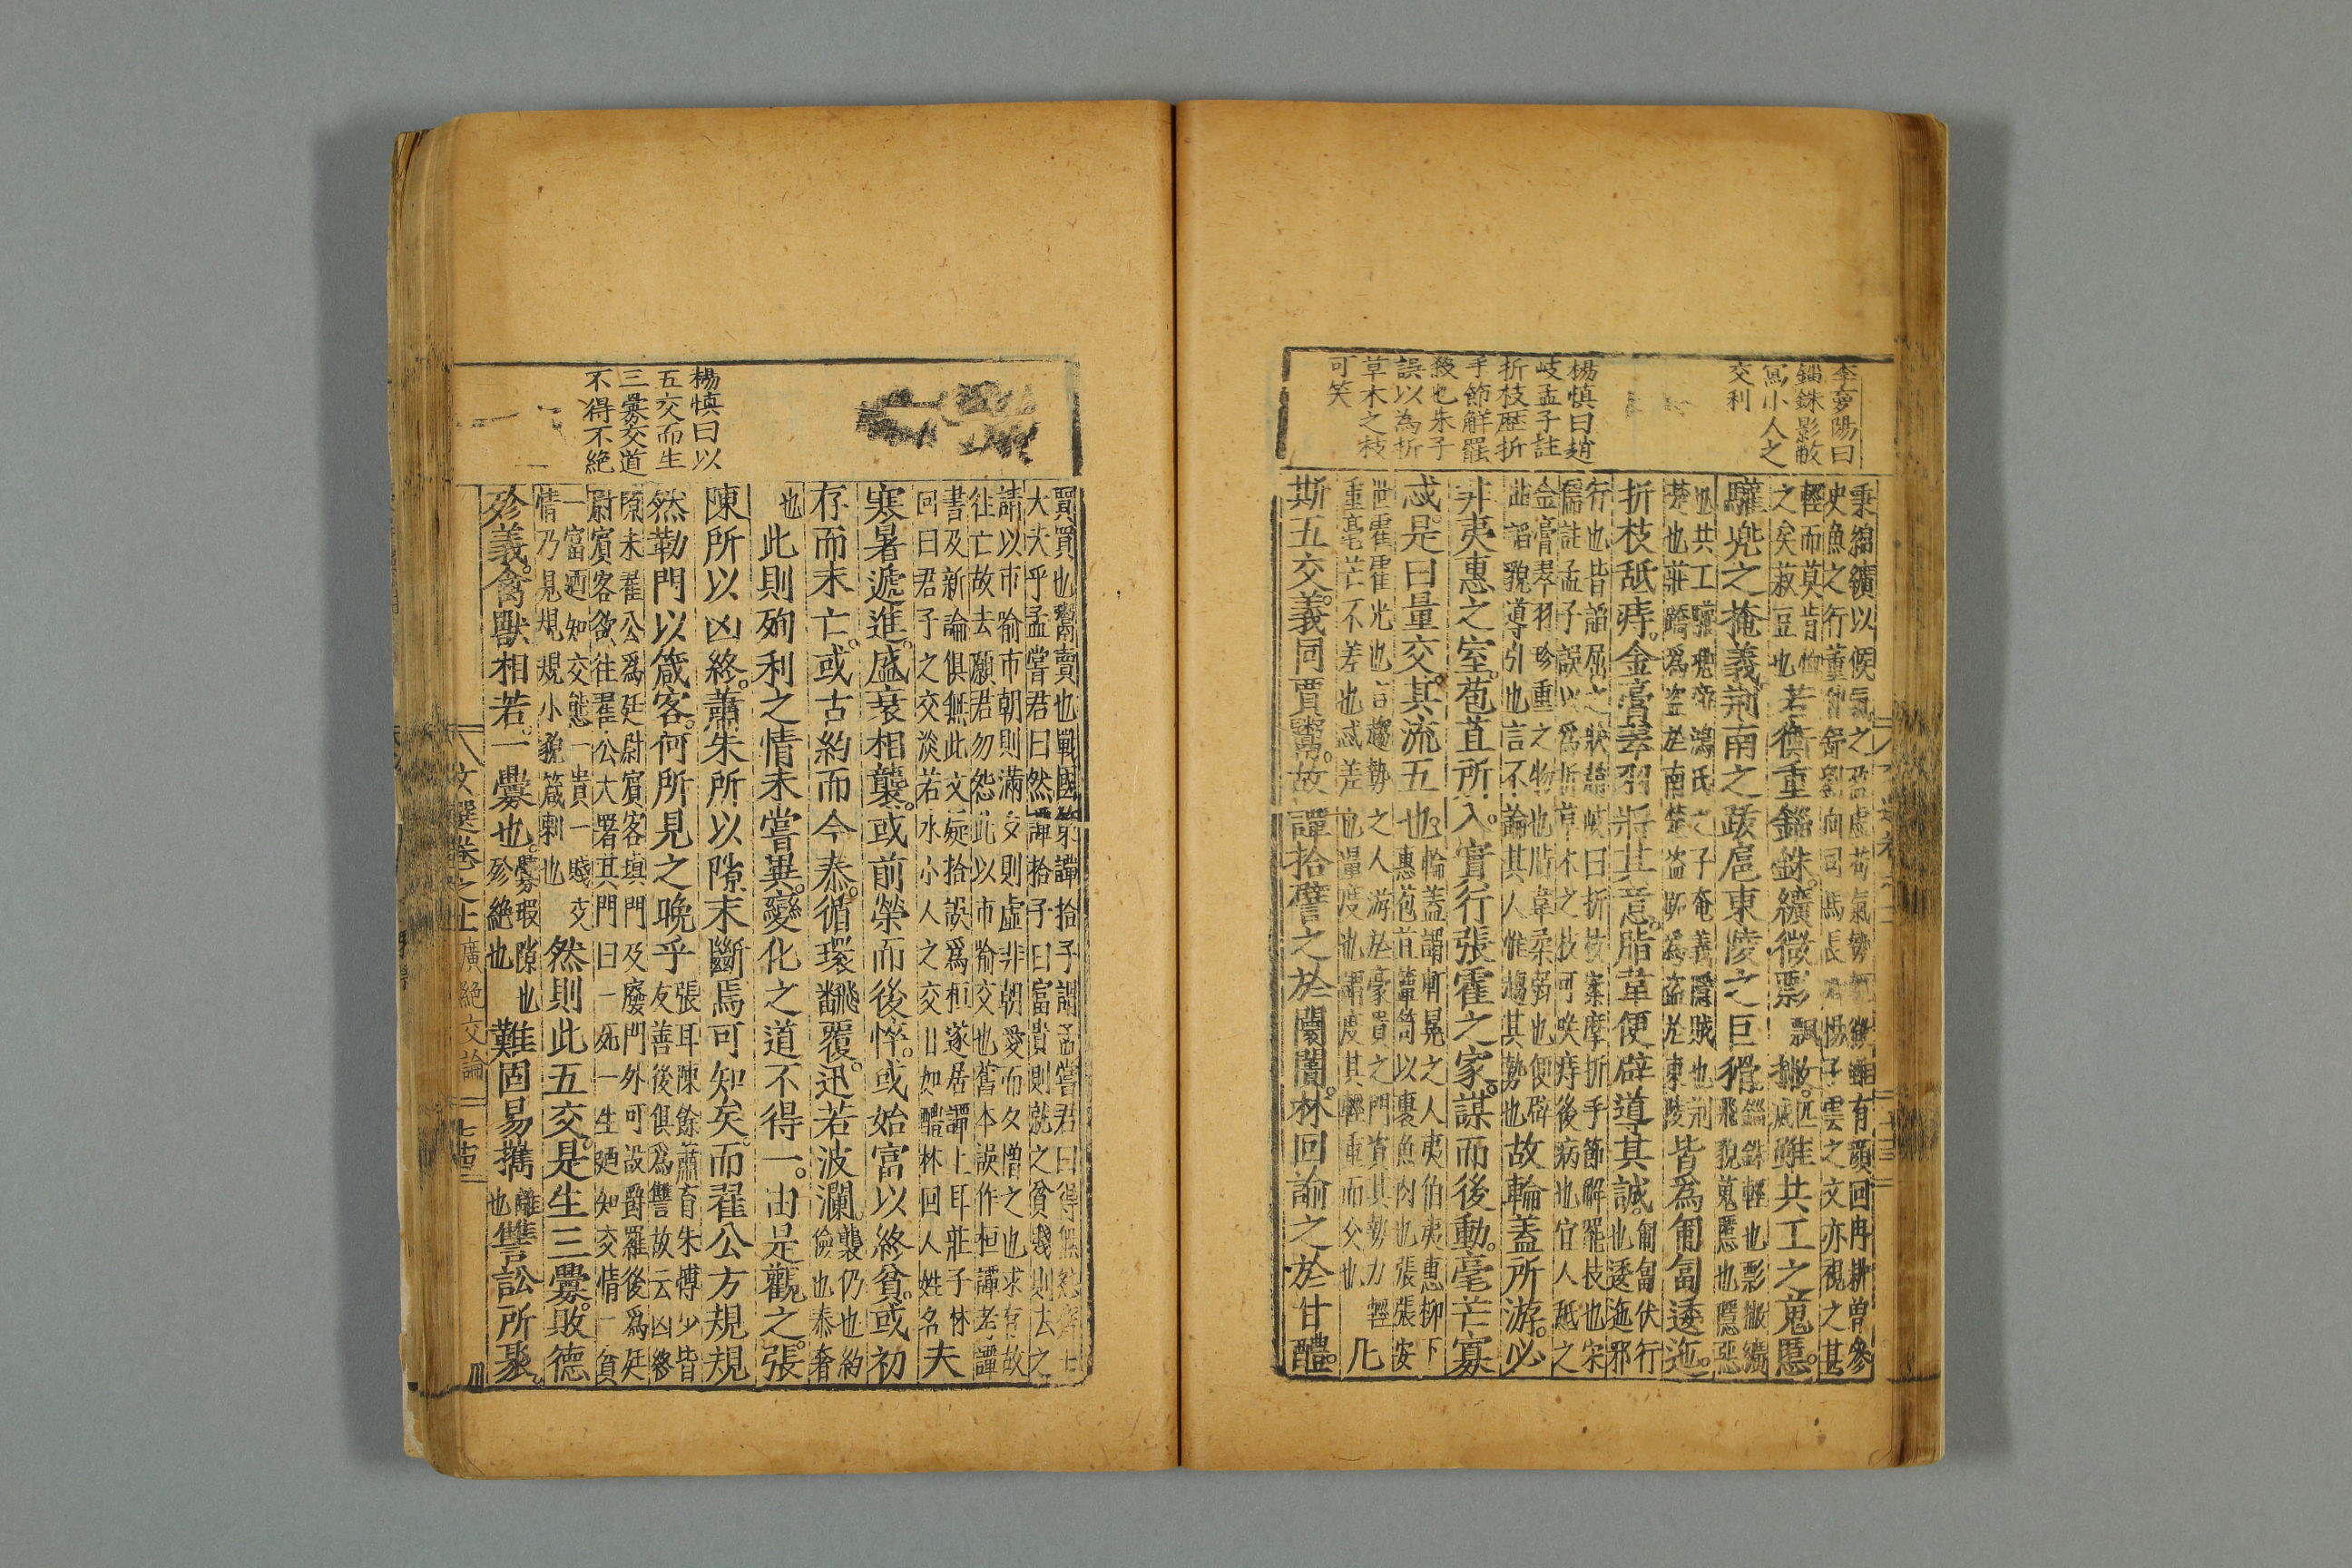 李夢陽曰
錙銖影撇
寫小人之
交利
楊慎曰趙
岐孟子註
折枝歷折
手節解罷
䘑也朱子
誤以為折
草木之枝
可笑
秉纊以候氣之
有顏回冉耕曾參
史魚之行董
揚子雲之文亦視之甚
輕而莫肯
之矣菽豆也若衡重錙銖纊微彯撇雖共工之蒐慝
驩兜之掩義荊南之跋扈東陵之巨猾
錙銖輕也彯撇纊
飛貌蒐慝也隱惡
也共工驩兜帝鴻氏之子奄義隱賊也荊
楚也莊蹻為盜於南楚盜跖為盜於東陵皆為匍匐逶迤
折枝舐痔金膏翠羽將其意脂韋便辟導其誠
匍匐伏行
也逶迤邪
行也皆諂屈之狀趙岐曰折枝案摩折手節解罷枝也宋
儒註孟子誤以為折草木之枝可咲痔後病也宜人舐之
金膏翠羽珍重之物也脂韋柔弱也便辟
諂貌導引也言不論其人惟趨其勢也故輪蓋所游必
非夷惠之室苞苴所入實行張霍之家謀而後動毫芒寡
忒是曰量交其流五也
輪蓋謂軒冕之人夷伯夷惠柳下
惠苞苴簞笥以裹魚肉也張張安
世霍霍光也言趨勢之人游於豪貴之門資其勢力輕
重毫芒不差也忒差也量度也謂度其輕重而交也凡
斯五交義同賈鬻故譚拾譬之於闤闠林回諭之於甘醴
楊慎曰以
五交而生
三釁交道
不得不絕
賈買也鬻賣也戰國策譚拾子謂孟嘗君曰得無怨齊士
大夫乎孟嘗君曰然譚拾子曰富貴則就之貧賤則去之
請以市喻市朝則滿夕則虛非朝愛而夕憎之也求存故
往亡故去願君勿怨此以市喻交也舊本誤作桓譚考譚
書及新論俱無此文疑拾誤為桓遂居譚上耳莊子林
回曰君子之交淡若水小人之交甘如醴林回人姓名夫
寒暑遞進盛衰相襲或前榮而後悴或始富以終貧或初
存而末亡或古約而今泰循環飜覆迅若波瀾
襲仍也約
儉也泰奢
也此則殉利之情未嘗異變化之道不得一由是觀之張
陳所以凶終蕭朱所以隙末斷焉可知矣而翟公方規規
然勒門以箴客何所見之晚乎
張耳陳餘蕭育朱博少皆
友善後俱為讐故云凶終
隙末翟公為廷尉賓客填門及廢門外可設爵羅後為廷
尉賓客欲往翟公大署其門曰一死一生廼知交情一貧
一富廼知交態一貴一賤交
情乃見規規小貌箴刺也然則此五交是生三釁敗德
殄義禽獸相若一釁也
釁瑕隙也
殄絕也難固易攜
離
也讐訟所聚
文選卷之上
廣絕交論